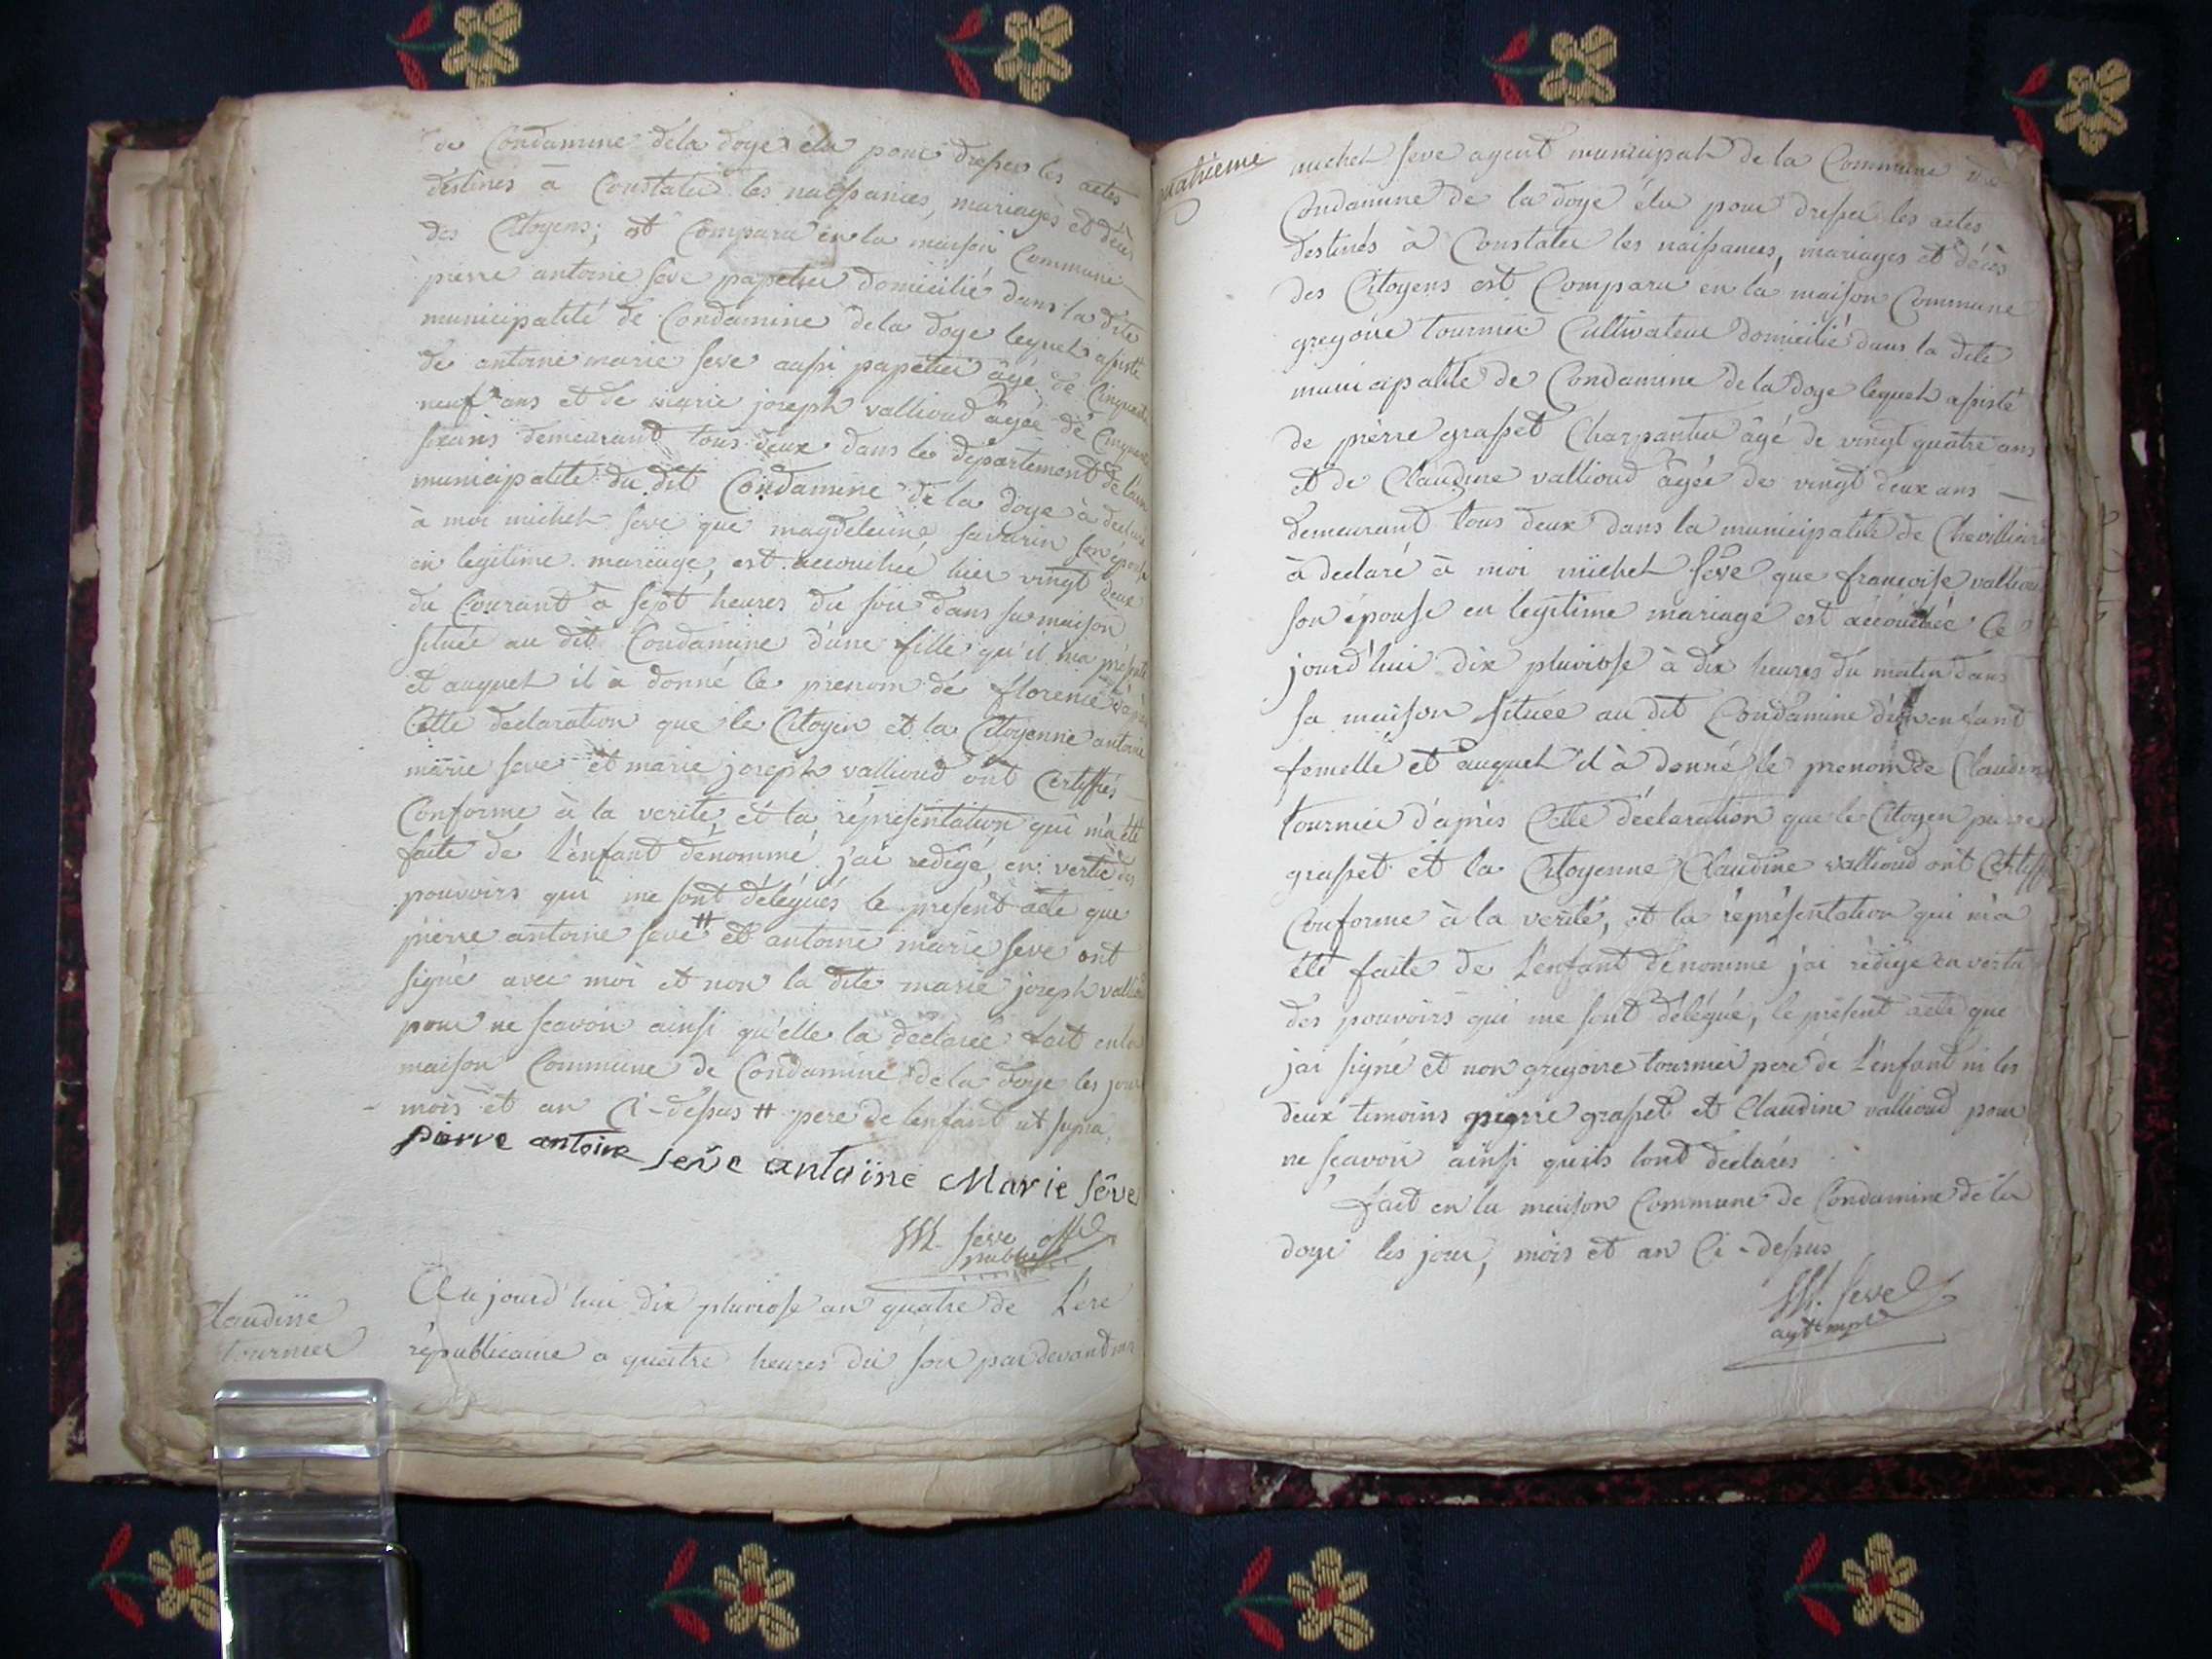 de Condamine dela doye élu pour dresser les actes
destinés à Constater les naissances, mariages et décès
des Citoyens; est Comparu en la maison Commune
pierre antoine seve papetier domicilié dans la dite
municipalité de Condamine dela doye lequel assisté
de antoine marie seve aussi papetier âgé de Cinquante
neuf ans et de marie joseph vallioud âgée de Cinquante
six ans demeurant tous deux dans le departement de l'ain
municipalité du dit Condamine de la doye à declaré
à moi michel seve que magdeleine savarin son épouse
en legitime mariage, est accouchée hier vingt deux
du Courant à sept heures du soir dans sa maison
située au dit Condamine d'une fille qu'il ma présenté
et auquel il à donné le prenom de florence d'après
Cette declaration que le Citoyen et la Citoyenne antoine
marie seve et marie joseph vallioud ont Certiffiés
Conforme à la verité et la répresentation qui m'a été
faite de L'enfant dénommé j'ai redigé, en vertu des
pouvoirs qui me sont délégués le present acte que
pierre antoine seve # et antoine marie seve ont
signé avec moi et non la dite marie joseph vallioud
pour ne scavoir ainsi qu'elle la declarée fait en la
maison Commune de Condamine dela doye les jour
mois et an Ci-dessus # pere de lenfant ut supra
pierre antoine seve antoine Marie sève
M. seve off
public
Claudine
tournier
Au jourd'hui dix pluviose an quatre de L'ere
républicaine a quatre heures du soir par devant moi
quatrieme
michel seve agent municipal de la Commune de
Condamine de la doye élu pour dresser les actes
destinés à Constater les naissances, mariages et décès
des Citoyens est Comparu en la maison Commune
gregoire tournier Cultivateur domicilié dans la dite
municipalité de Condamine de la doye lequel assisté
de pierre grasset Charpantier âgé de vingt quatre ans
et de Claudine vallioud âgée de vingt deux ans
demeurant tous deux dans la municipalité de Chevilliard
à declaré à moi michel seve que francoise vallioud
son épouse en legitime mariage est accouchée Ce
jourd'hui dix pluviose à dix heures du matin dans
sa maison située au dit Condamine d'un enfant
femelle et auquel il à donné le prenom de Claudine
tournier d'après Cette déclaration que le Citoyen pierre
grasset et la Citoyenne Claudine vallioud ont Certiffié
Conforme à la verité, et la réprésentation qui m'a
été faite de L'enfant dénommé j'ai rédigé en vertu
des pouvoirs qui me sont délégué, le présent acte que
j'ai signé et non gregoire tournier pere de L'enfant ni les
deux temoins pierre grasset et Claudine vallioud pour
ne scavoir ainsi quils lont declarés
fait en la maison Commune de Condamine dela
doye les jour, mois et an Ci-dessus
M. seve
agt mpal